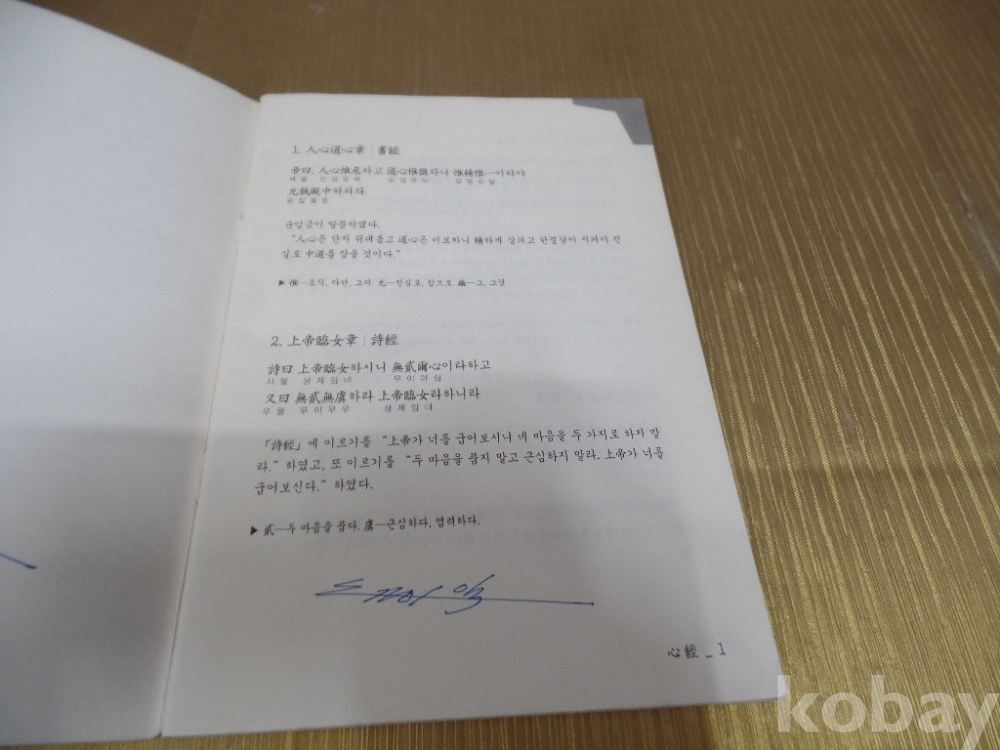 1. 人心道心章 | 書經
帝曰, 人心惟危하고 道心惟微하니 惟精惟一이라야
제왈 인심유위 도심유미 유정유일
允執厥中하리라
윤집궐중
순임금이 말씀하였다.
"人心은 단지 위태롭고 道心은 미묘하니 精하게 살피고 한결같이 지켜야 진
실로 中道를 잡을 것이다."
▶ 惟—오직, 다만, 그러. 允—진실로, 참으로. 厥—그, 그것
2. 上帝臨女章 | 詩經
詩曰 上帝臨女하시니 無貳爾心이라하고
시왈 상제임녀 무이이심
又曰 無貳無虞하라 上帝臨女라하니라
우왈 무이무우 상제임녀
「詩經」에 이르기를 "上帝가 너를 굽어보시니 네 마음을 두 가지로 하지 말
라." 하였고, 또 이르기를 "두 마음을 품지 말고 근심하지 말라. 上帝가 너를
굽어보신다." 하였다.
▶ 貳—두 마음을 품다. 虞—근심하다, 염려하다.
心經 _ 1
kobay